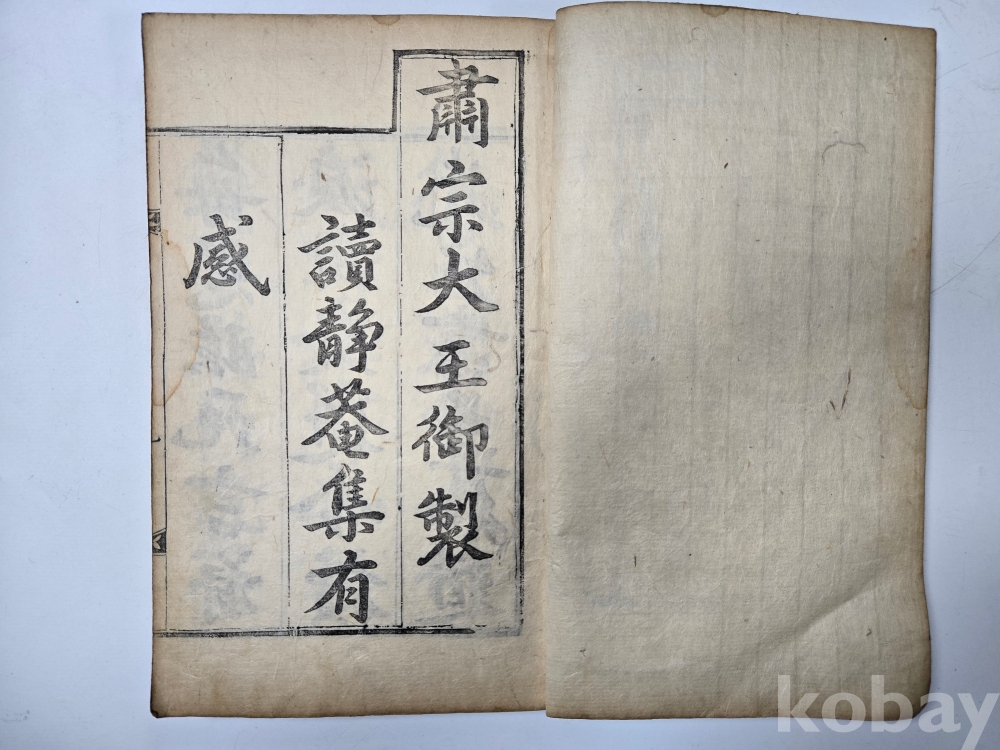 肅宗大王御製
讀靜菴集有
感
kobay